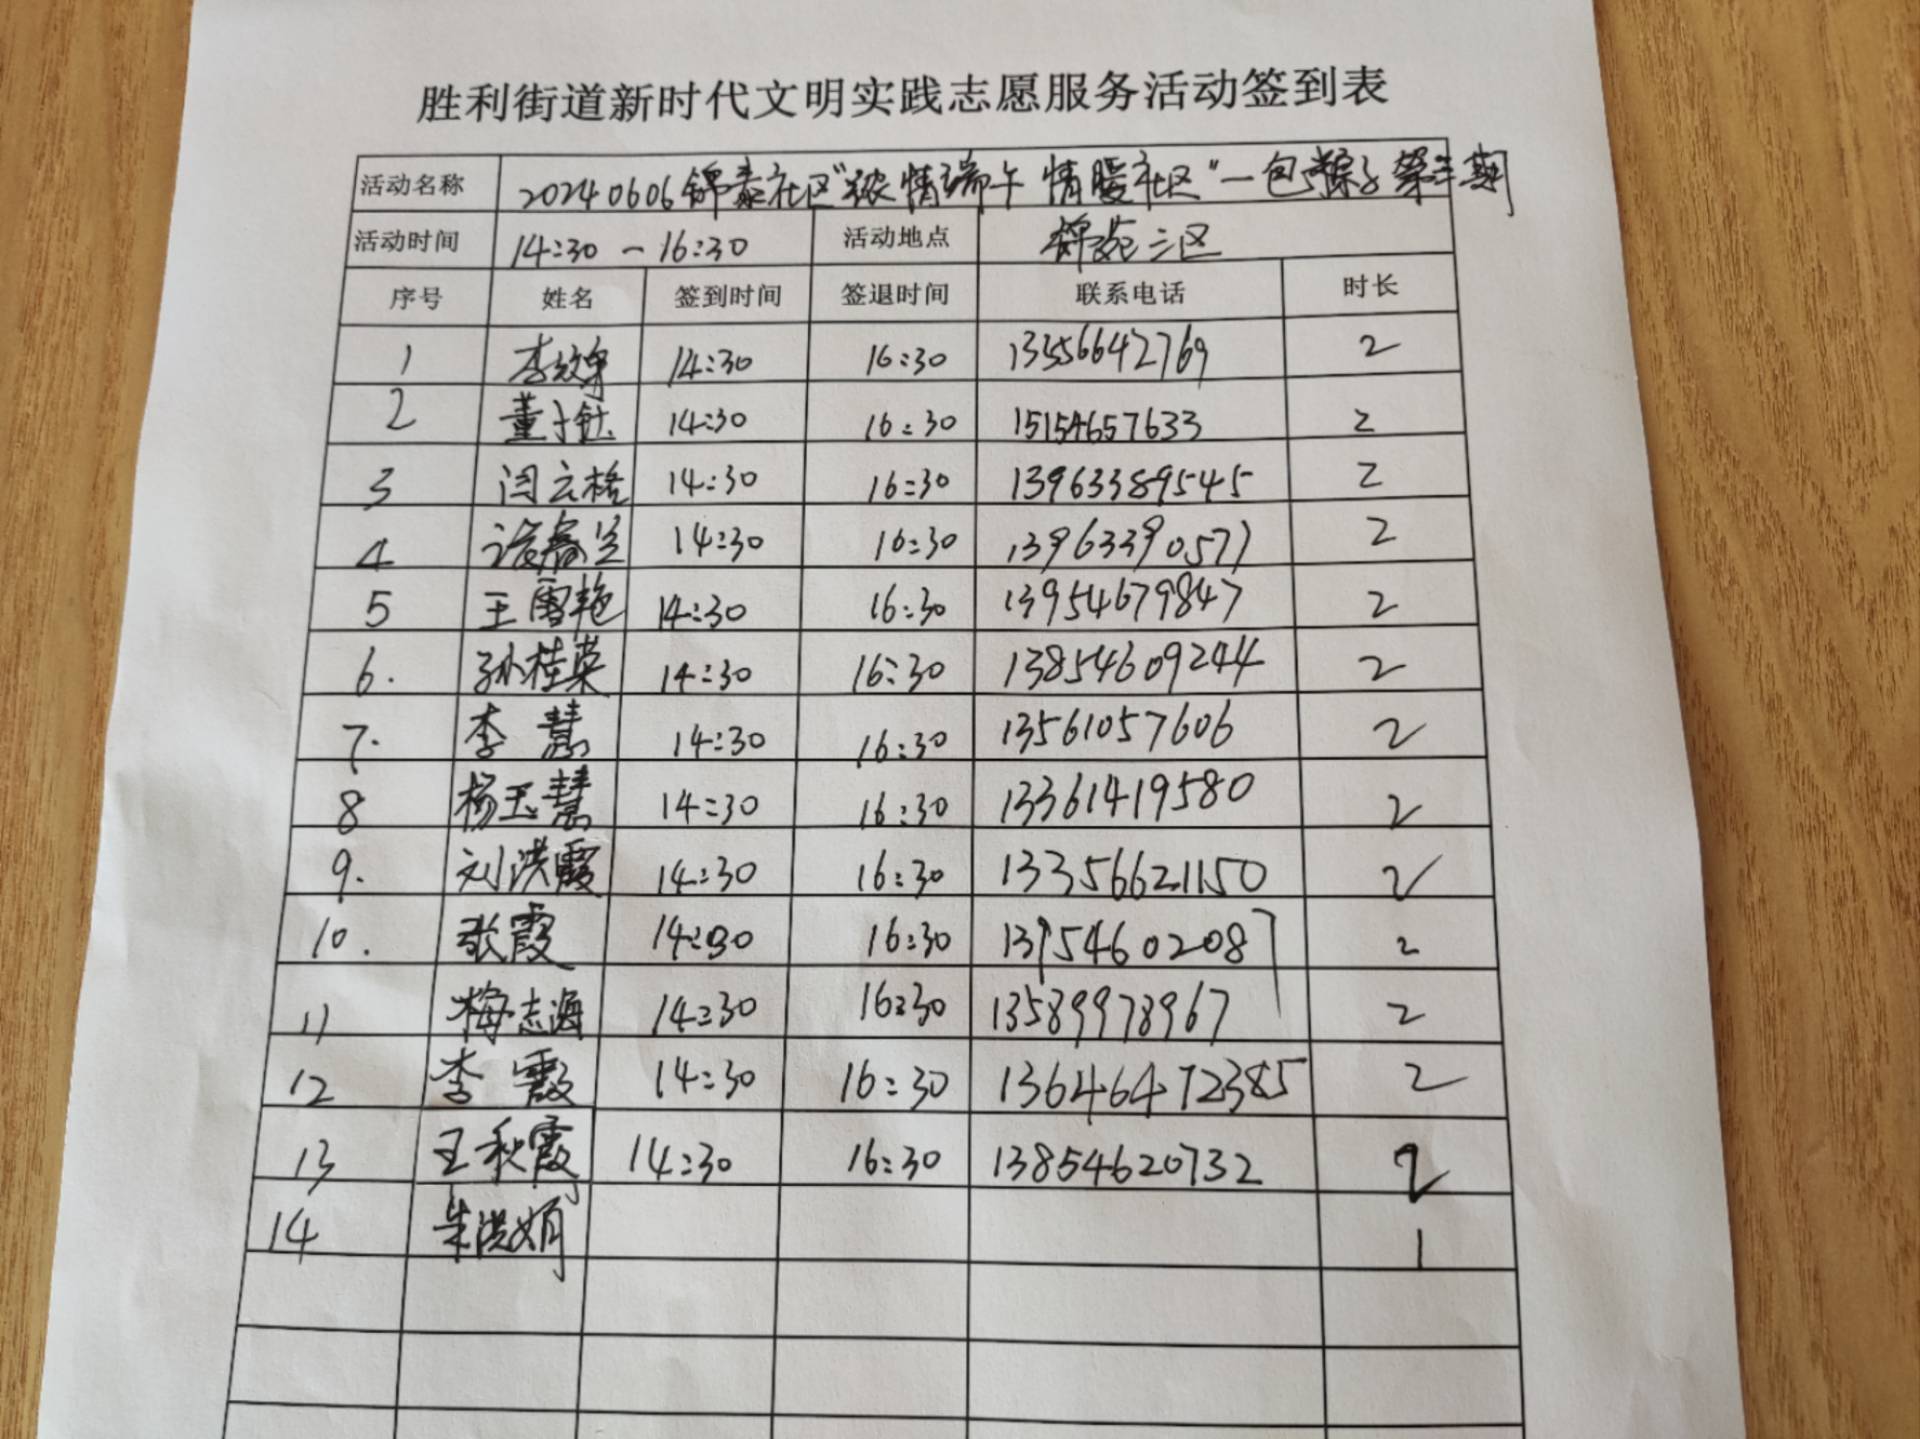 胜利街道新时代文明实践志愿服务活动签到表
活动名称 20240606锦泰社区"浓情端午 情暖社区"一包粽子第二期
活动时间 14:30-16:30 活动地点 锦苑三区
序号 姓名 签到时间 签退时间 联系电话 时长
1 14:30 16:30 13356642769 2
2 董于钰 14:30 16:30 15154657633 2
3 闫云格 14:30 16:30 13963389545 2
4 14:30 16:30 13963390577 2
5 王雪艳 14:30 16:30 13954679847 2
6. 孙桂英 14:30 16:30 13854609244 2
7. 李慧 14:30 16:30 13561057606 2
8 杨玉慧 14:30 16:30 13361419580 2
9. 刘洪霞 14:30 16:30 13356621150 2
10. 张霞 14:30 16:30 13954602087 2
11 梅志海 14:30 16:30 13589978967 2
12 李霞 14:30 16:30 13646472385 2
13 王秋霞 14:30 16:30 13854620732 2
14 朱洪娟 1